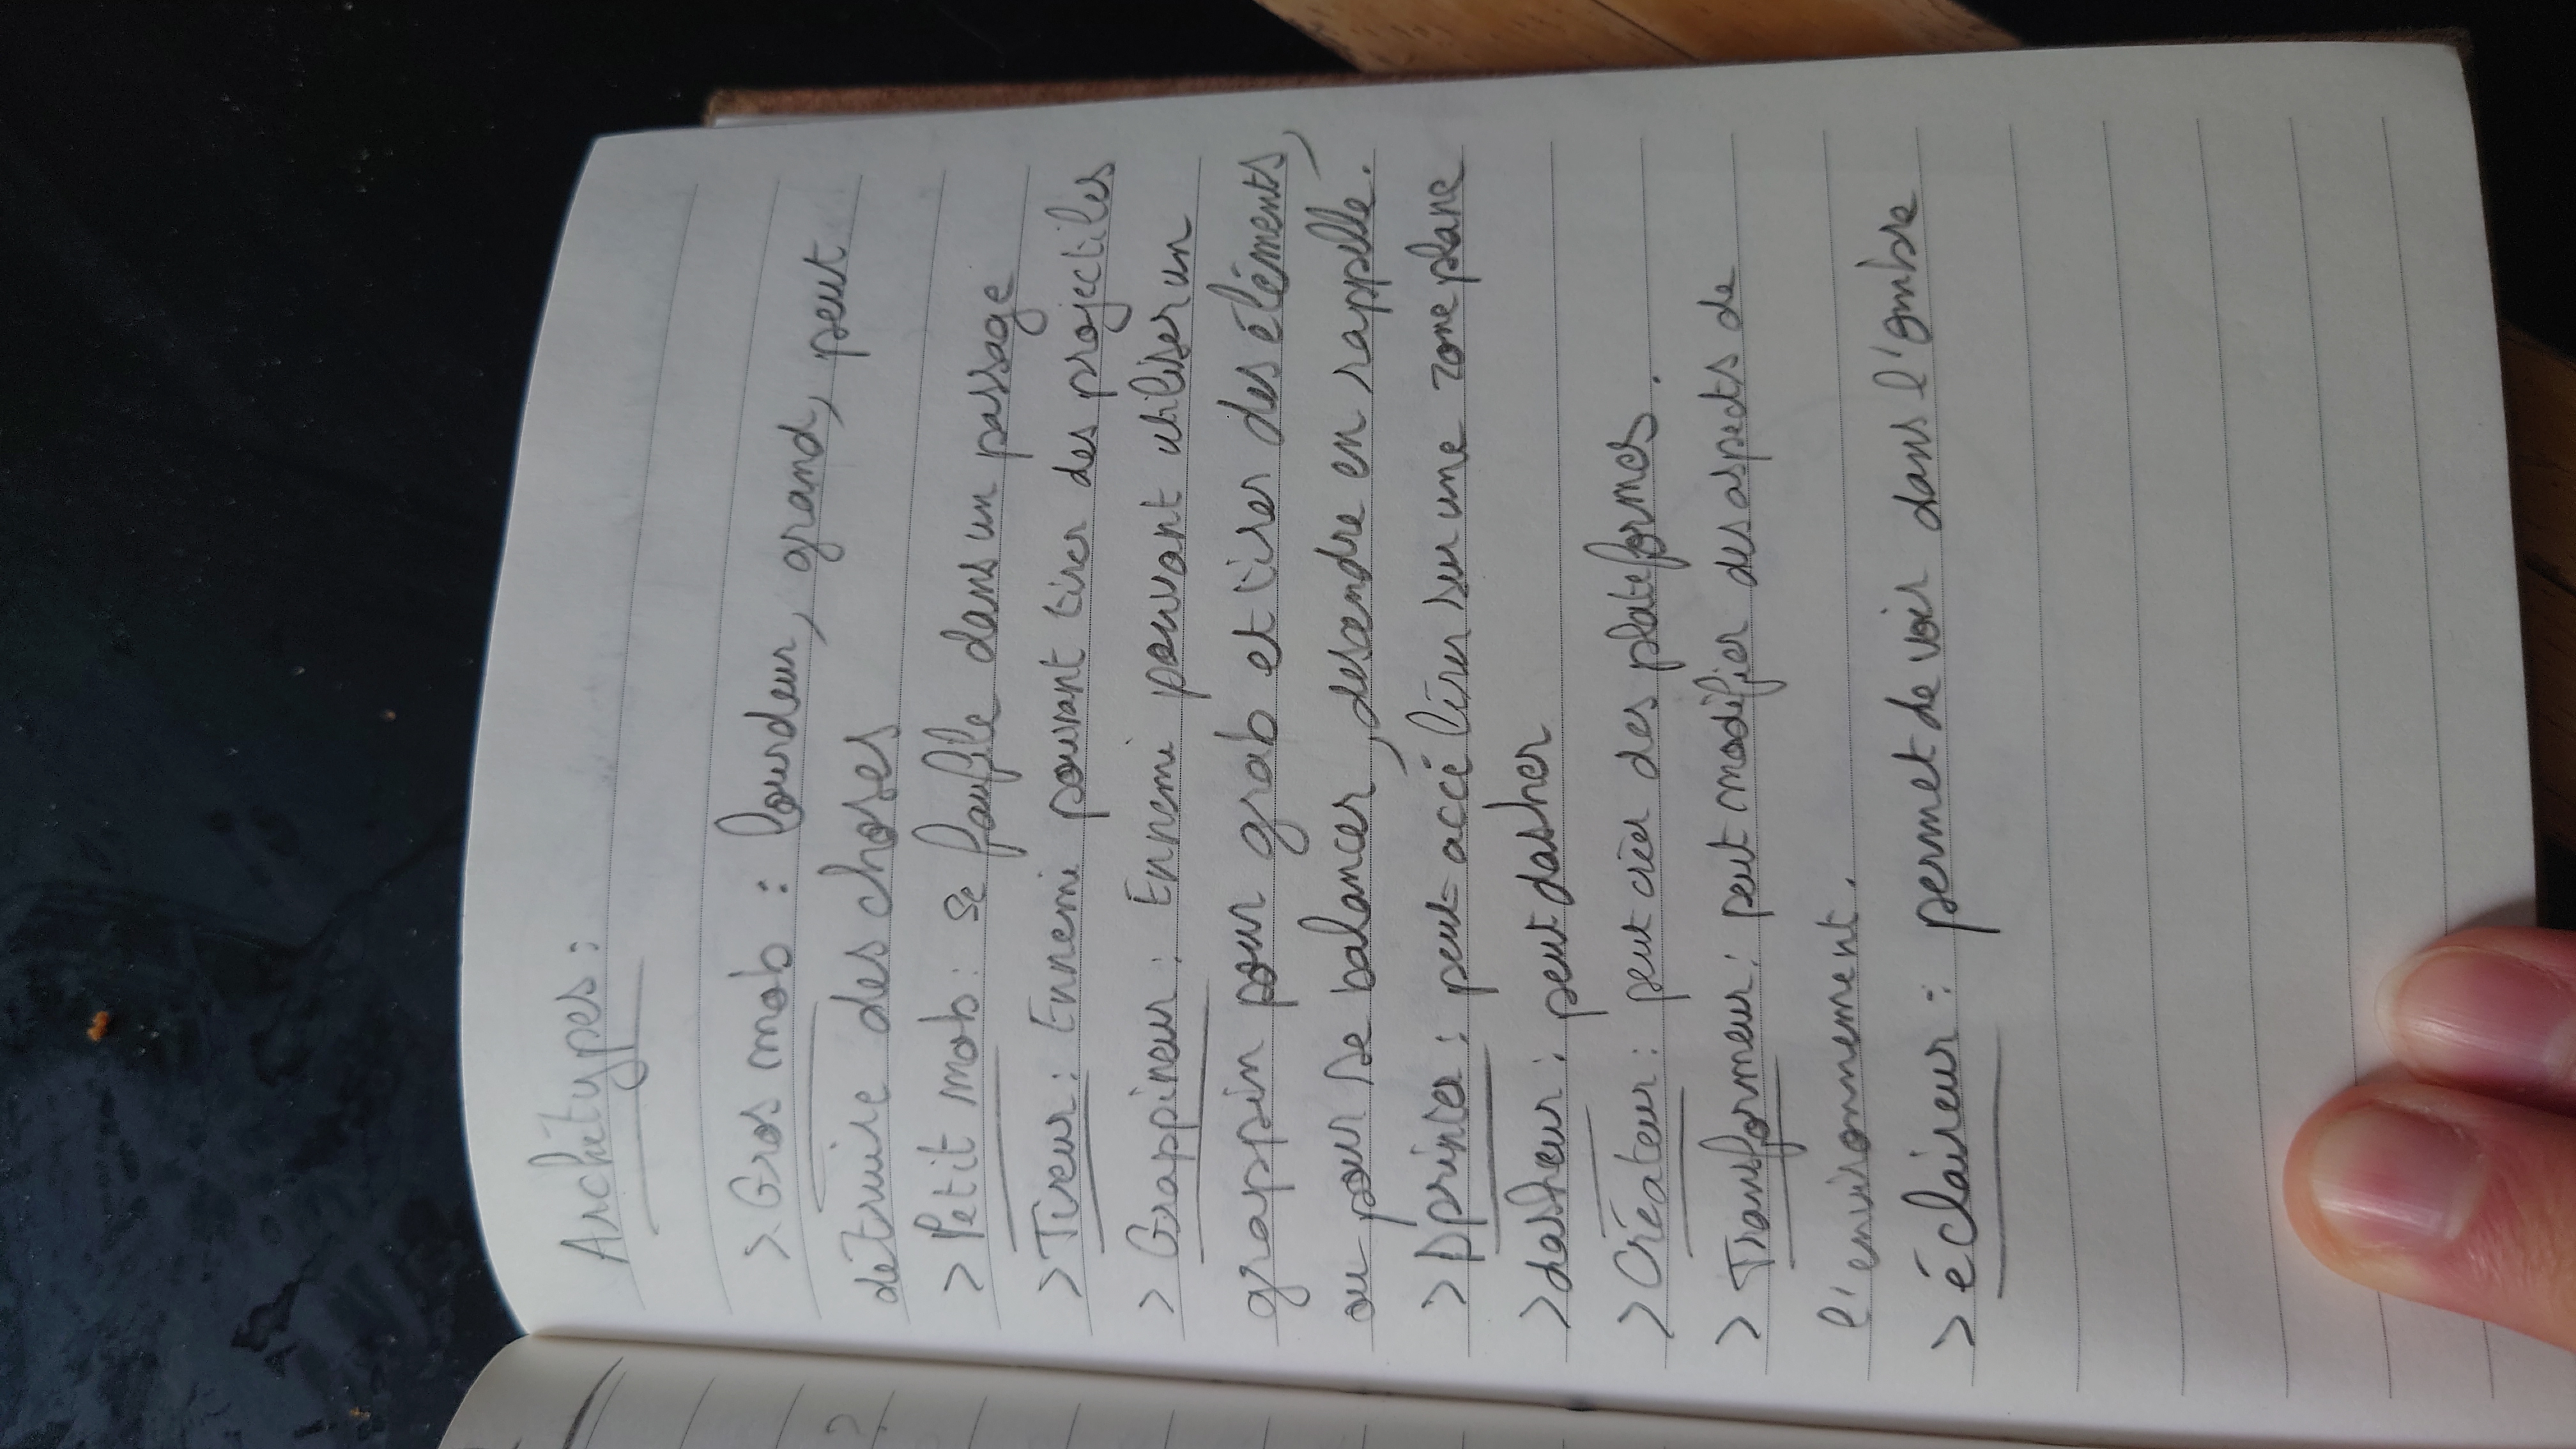 Archétypes :
> Gros mob : lourdeur, grand, peut
détruire des choses
> Petit mob : se faufile dans un passage
> Tireur : Ennemi pouvant tirer des projectiles
> Grappineur : Ennemi pouvant utiliser un
grappin pour grab et tirer des éléments,
ou pour se balancer, descendre en rappelle.
> Sprinter : peut accélérer sur une zone plane
> dasheur : peut dasher
> Créateur : peut créer des plateformes.
> Transformeur : peut modifier des aspects de
l'environnement.
> éclaireur : permet de voir dans l'ombre
?